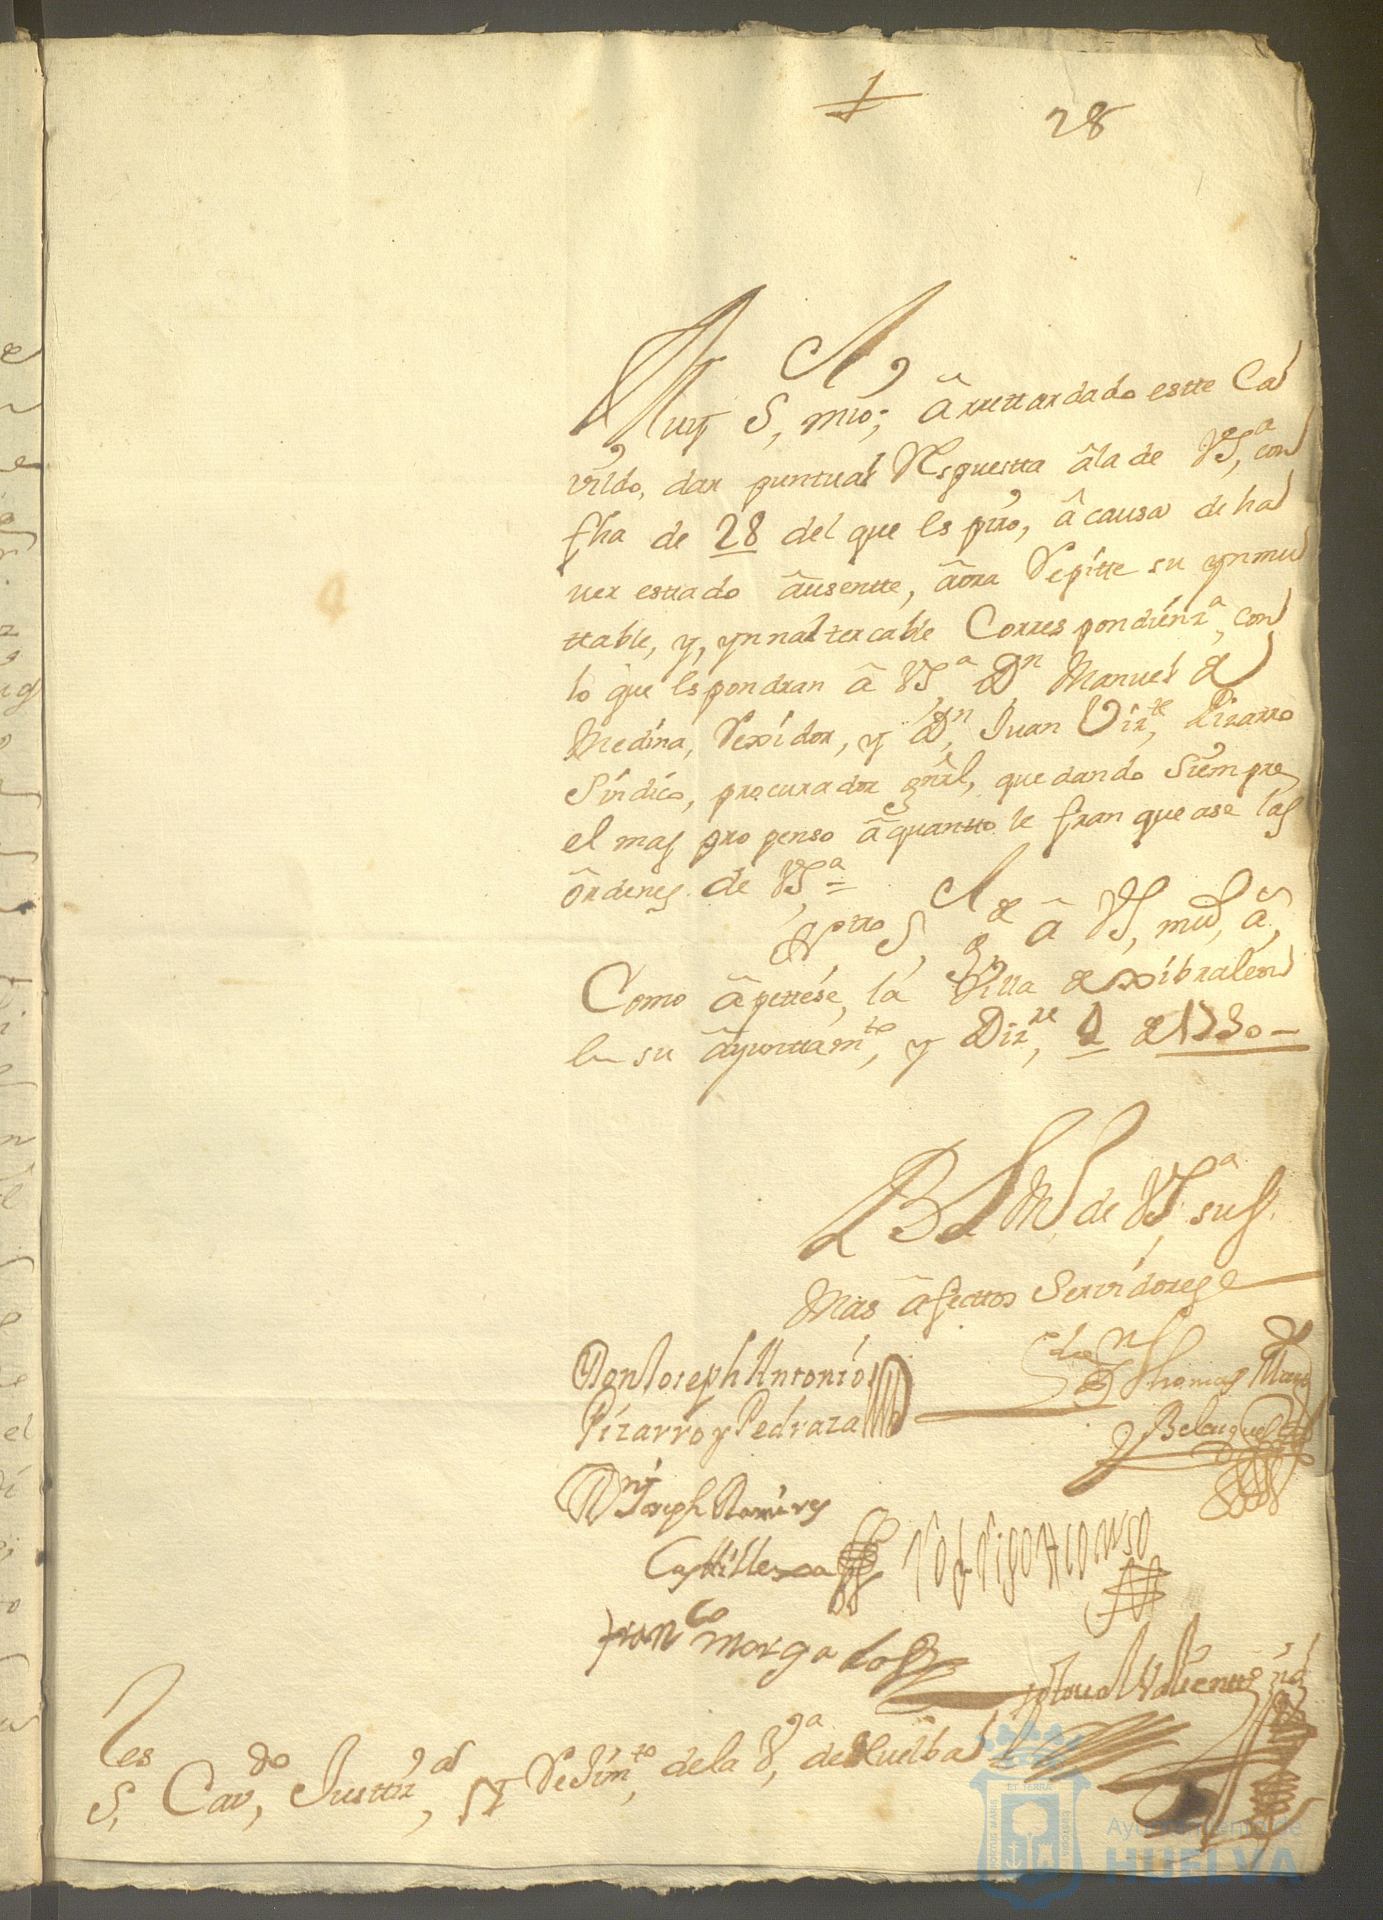 28
Muy S.r mio; â rrettardado estte Ca
vildo, dar puntual Respuestta âla de VS.a, con
fha de 28 del que espiro, â causa de ha
ver estado âusentte, âora Repitte su ynmu
ttable, y, ynnaltercable Correspondienz.a, con
lo que espondran â VS.a D.n Manuel de
Medina, Rexidor, y D.n Juan Viz.te Pizarro
Sindico, procurador gnrl, quedando siempre
el mas propenso âquantto le franquease las
ôrdenes de VS.a =
N.ttro S.r g.de â VS, mu.s a.s,
Como âpettese, la Villa de xibraleon
en su âyunttam.to, y Diz.re, 2 de 1730 =
BLM de VS.a sus
Mas âfecttos Servidores
Don Joseph Antonio
Pizarro y Pedraza
D.n Thomas
y Belazquez
D.n Joseph Ramires
Casttillexa
Rodrigo Alonso
Fran.co Morgado
Valiente
S.res Cav.do, Justtiz.a, y Rejim.to, de la V.a, de Huelba
PORTUS MARIS
ET TERRA
CUSTODIA
Ayuntamiento de
HUELVA